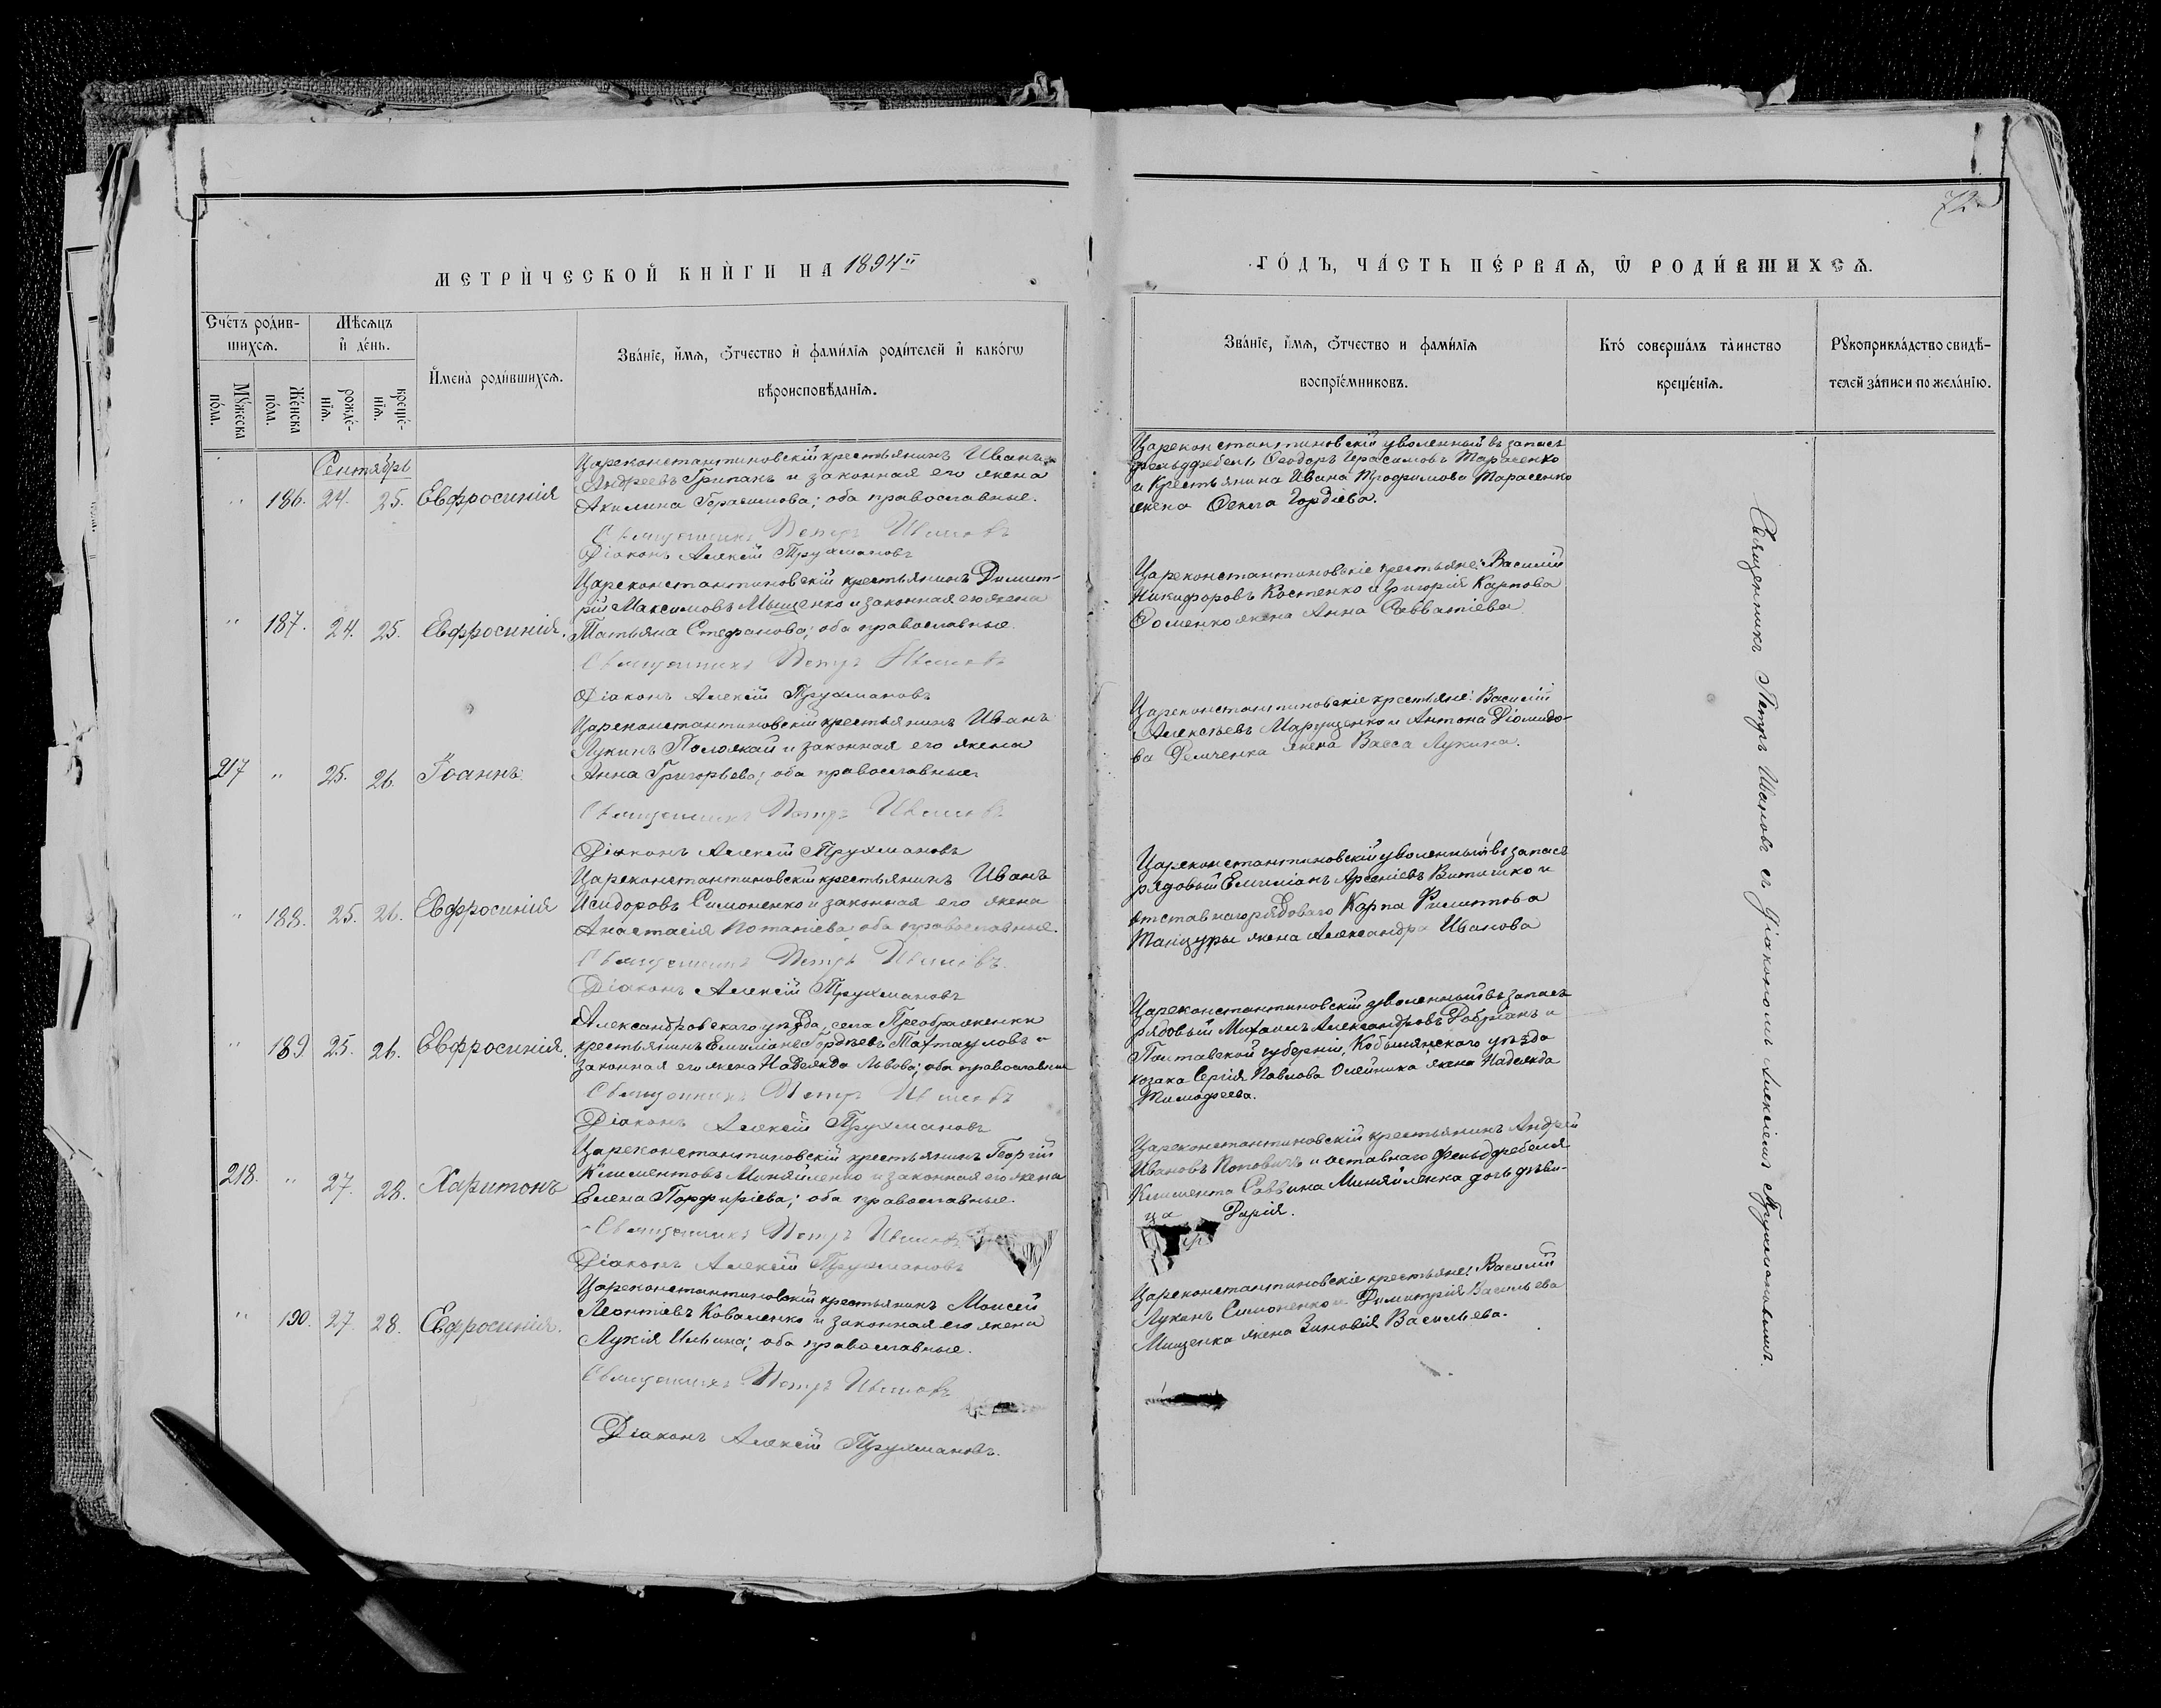 72
МЕТРИ́ЧЕСКОЙ КНИ́ГИ НА 1894й
ГО́ДЪ, ЧА́СТЬ ПЕ́РВАѦ, Ѿ РОДИ́ВШИХСѦ.
Сче́тъ роди́в-
шихсѧ.
Мѣ́сѧцъ
и҆ де́нь.
Му́жеска
по́ла.
Же́нска
по́ла.
рожде́-
нїѧ.
креще́-
нїѧ.
И҆мена̀ роди́вшихсѧ.
Зва́нїе, и҆́мѧ, ѻ҆́тчество и҆ фами́лїѧ роди́телей и҆ како́гѡ
вѣроисповѣ́данїѧ.
Зва́нїе, и҆́мѧ, ѻ҆́тчество и фами́лїѧ
воспрїе́мниковъ.
Кто́ соверша́лъ та́инство
креще́нїѧ.
Рꙋкоприкла́дство свидѣ́-
телей за́писи по жела́нїю.
Сентябрь
" 186. 24. 25. Евфросинія
Цареконстантиновскій крестьянинъ Иванъ
Андреевъ Грипакъ и законная его жена
Акилина Герасимова; оба православные.
Священникъ Петръ Ивановъ
Діаконъ Алексій Трухмановъ
Цареконстантиновскій уволенный въ запасъ
фельдфебель Ѳеодоръ Герасимовъ Тарасенко
и крестьянина Ивана Трофимова Тарасенко
жена Ѳекла Гордіева.
" 187. 24. 25. Евфросинія.
Цареконстантиновскій крестьянинъ Димит-
рій Максимовъ Мищенко и законная его жена
Татьяна Стефанова; оба православные.
Священникъ Петръ Ивановъ
Діаконъ Алексій Трухмановъ
Цареконстантиновскіе крестьяне: Василій
Никифоровъ Костенко и Григорія Карпова
Ѳоменко жена Анна Савватіева
217 " 25. 26. Іоаннъ.
Цареконстантиновскій крестьянинъ Иванъ
Лукинъ Положай и законная его жена
Анна Григорьева; оба православные.
Священникъ Петръ Ивановъ
Діаконъ Алексій Трухмановъ
Цареконстантиновскіе крестьяне: Василій
Алексѣевъ Марущенко и Антона Діомидо-
ва Демченка жена Васса Лукина.
" 188. 25. 26. Евфросинія
Цареконстантиновскій крестьянинъ Иванъ
Исидоровъ Симоненко и законная его жена
Анастасія Потапіева; оба православные.
Священникъ Петръ Ивановъ.
Діаконъ Алексій Трухмановъ
Цареконстантиновскій уволенный въ запасъ
рядовый Емиліанъ Арсеніевъ Витишко и
отставнаго рядоваго Карпа Филиппова
Танцуры жена Александра Иванова
" 189 25. 26. Евфросинія.
Александровскаго уѣзда, села Преображенки
крестьянинъ Емиліанъ Гордѣевъ Тахтауловъ и
законная его жена Надежда Львова; оба православные
Священникъ Петръ Ивановъ
Діаконъ Алексій Трухмановъ
Цареконстантиновскій уволенный въ запасъ
рядовый Михаилъ Александровъ Добріанъ и
Полтавской губерніи, Кобылянскаго уѣзда
козака Сергія Павлова Олейника жена Надежда
Тимофеева.
218. " 27. 28. Харитонъ
Цареконстантиновскій крестьянинъ Георгій
Климентовъ Миняйленко и законная его жена
Елена Порфиріева; оба православные.
Священникъ Петръ Ивановъ
Діаконъ Алексій Трухмановъ
Цареконстантиновскій крестьянинъ Андрей
Ивановъ Поповичъ и оставнаго фельдфебеля
Климента Саввина Миняйленка дочь дѣви-
ца Дарія.
" 190. 27. 28. Евфросинія.
Цареконстантиновскій крестьянинъ Моисей
Леонтіевъ Коваленко и законная его жена
Лукія Ильина; оба православные.
Священникъ Петръ Ивановъ
Діаконъ Алексій Трухмановъ.
Цареконстантиновскіе крестьяне: Василій
Лукинъ Симоненко и Димитрія Васильева
Мищенка жена Зиновія Васильева.
Священникъ Петръ Ивановъ съ Діакономъ Алексіемъ Трухмановымъ.